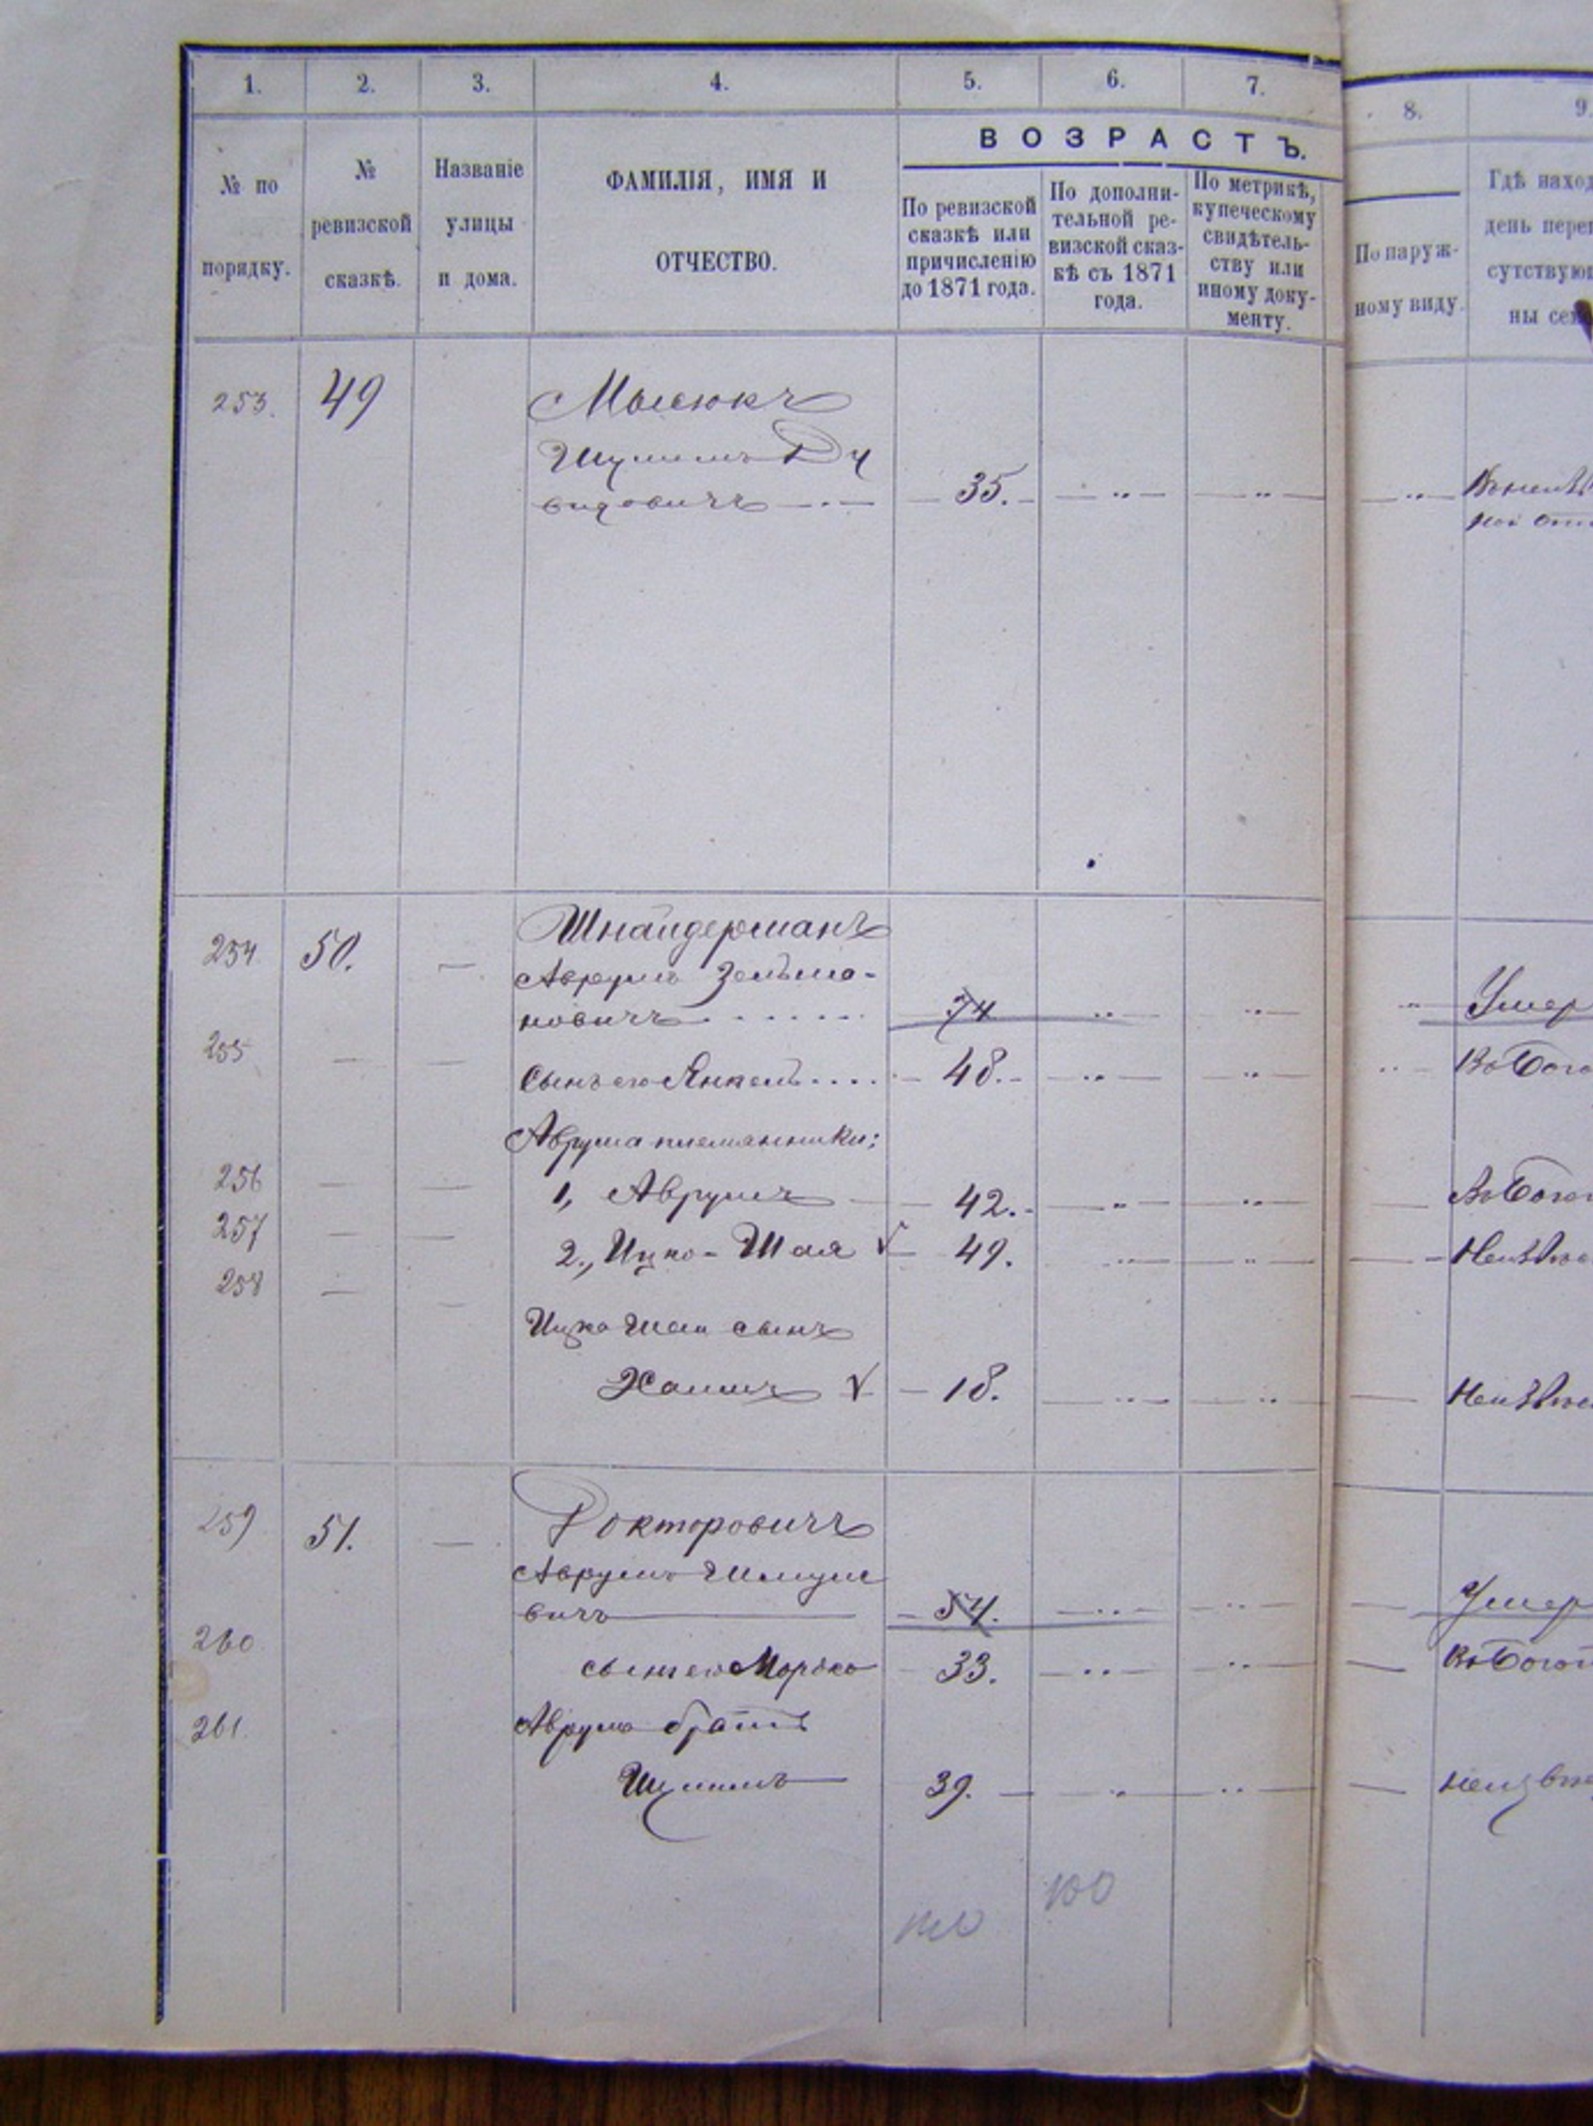 1. 2. 3. 4. 5. 6. 7. 8. 9.
№ по порядку.
№ ревизской сказкѣ.
Названіе улицы и дома.
ФАМИЛІЯ, ИМЯ И ОТЧЕСТВО.
ВОЗРАСТЪ.
По ревизской сказкѣ или причисленію до 1871 года.
По дополни-тельной ре-визской сказ-кѣ съ 1871 года.
По метрикѣ, купеческому свидѣтель-ству или иному доку-менту.
По наруж-ному виду.
Гдѣ наход
день переп
сутствующ
ны сем
253. 49
Шулимъ Ду
видовичъ 35.
254 50. — Шнайдерманъ
Аврумъ Зельма-
новичъ 74 Умер
255 — — Сынъ его Янкель 48. Во Бого
Аврума племянники:
256 — — 1, Аврумъ 42. Во Бого
257 — — 2., Ицко-Шая √ 49. Неизвѣс
258 — —
Ицко Шаи сынъ
Хаимъ √ 18. Неизвѣс
259 51. — Докторовичъ
Аврумъ Шмуле
вичъ 54. Умер
260 сынъ его Мордко 33. Во Бого
261. Аврума братъ
Шулимъ 39. Неизвѣс
100